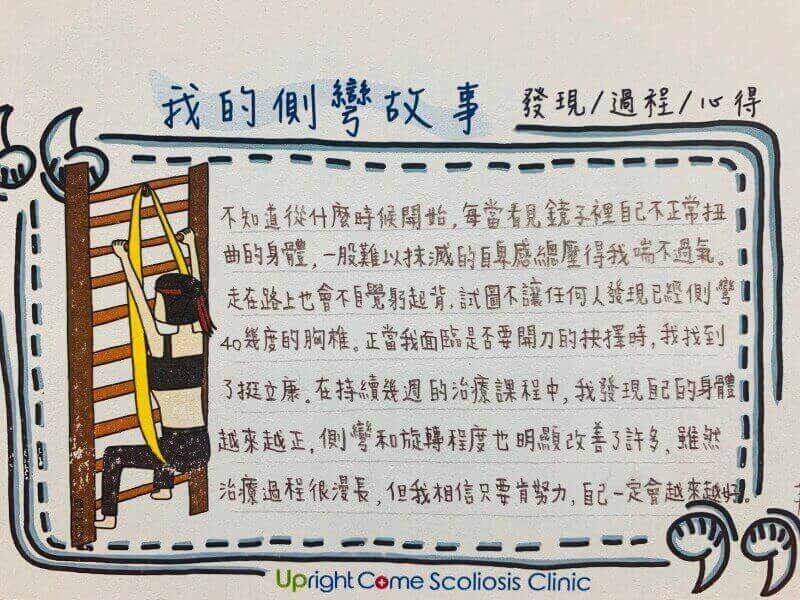 我的側彎故事 發現/過程/心得
不知道從什麼時候開始，每當看見鏡子裡自己不正常扭
曲的身體，一股難以抹滅的自卑感總壓得我喘不過氣。
走在路上也會不自覺躬起背，試圖不讓任何人發現已經側彎
40幾度的胸椎。正當我面臨是否要開刀的抉擇時，我找到
了挺立康。在持續幾週的治療課程中，我發現自己的身體
越來越正，側彎和旋轉程度也明顯改善了許多，雖然
治療過程很漫長，但我相信只要肯努力，自己一定會越來越好。
Upright Come Scoliosis Clinic